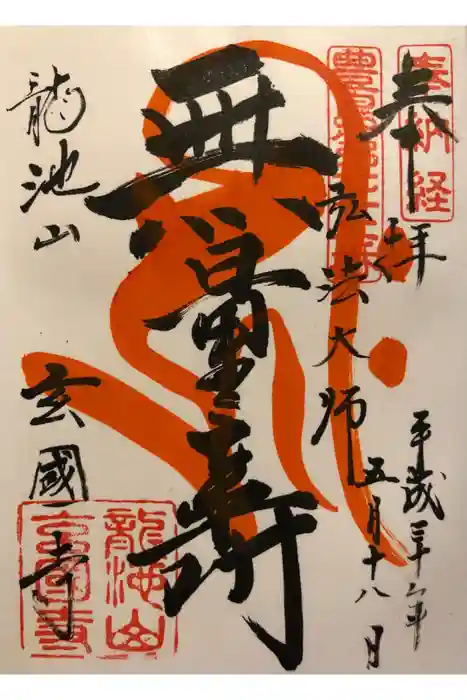 奉拝
奉納経
弘法大師
平成三十年
五月十八日
無量寿
龍池山
玄國寺
龍池山
玄國寺